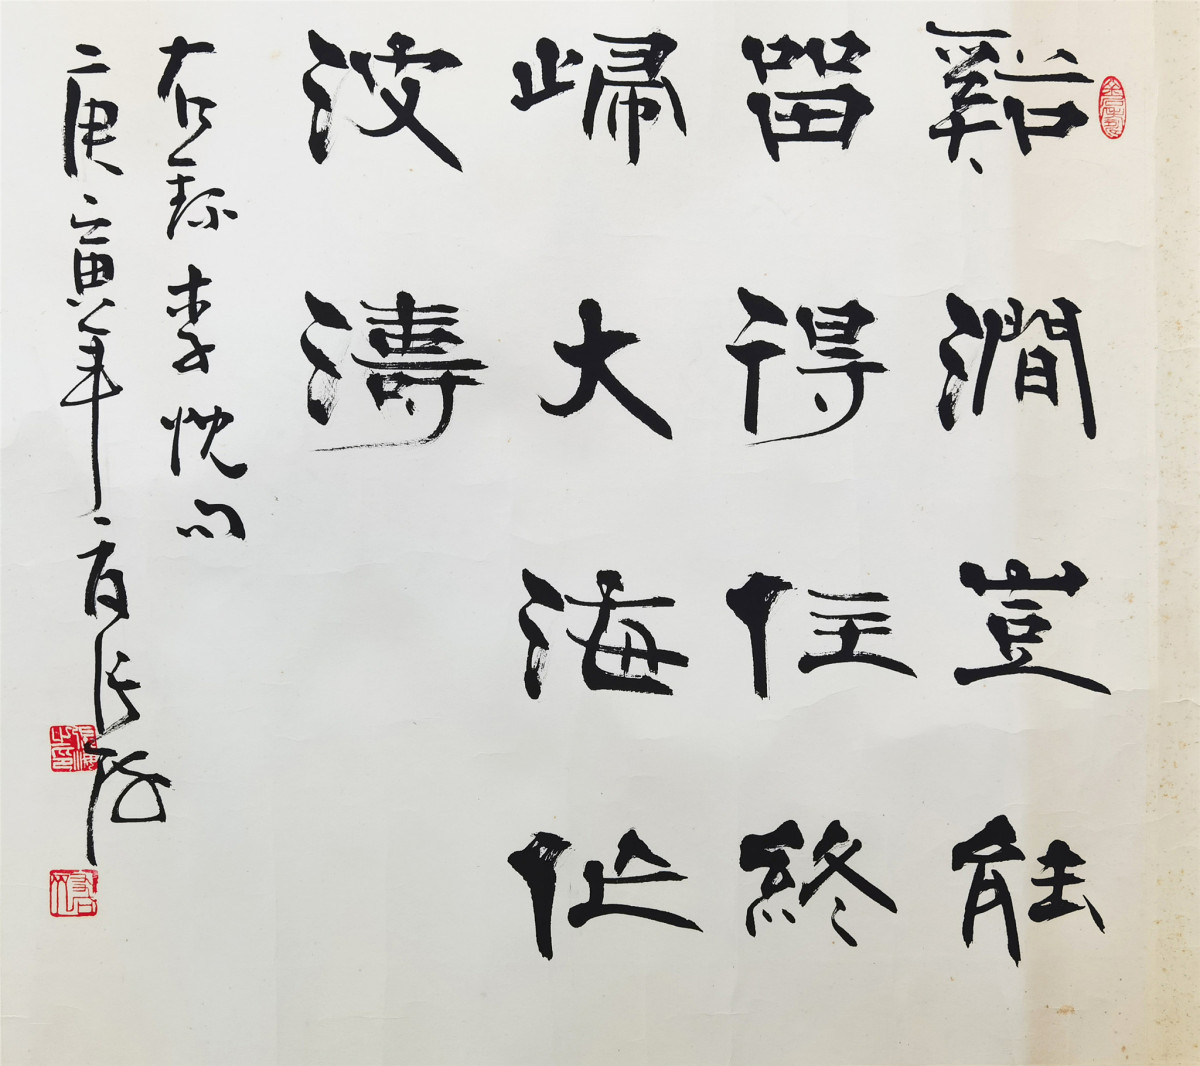 谿澗豈能
留得住終
歸大海作
波濤
右録李忱句
庚寅年夏張海